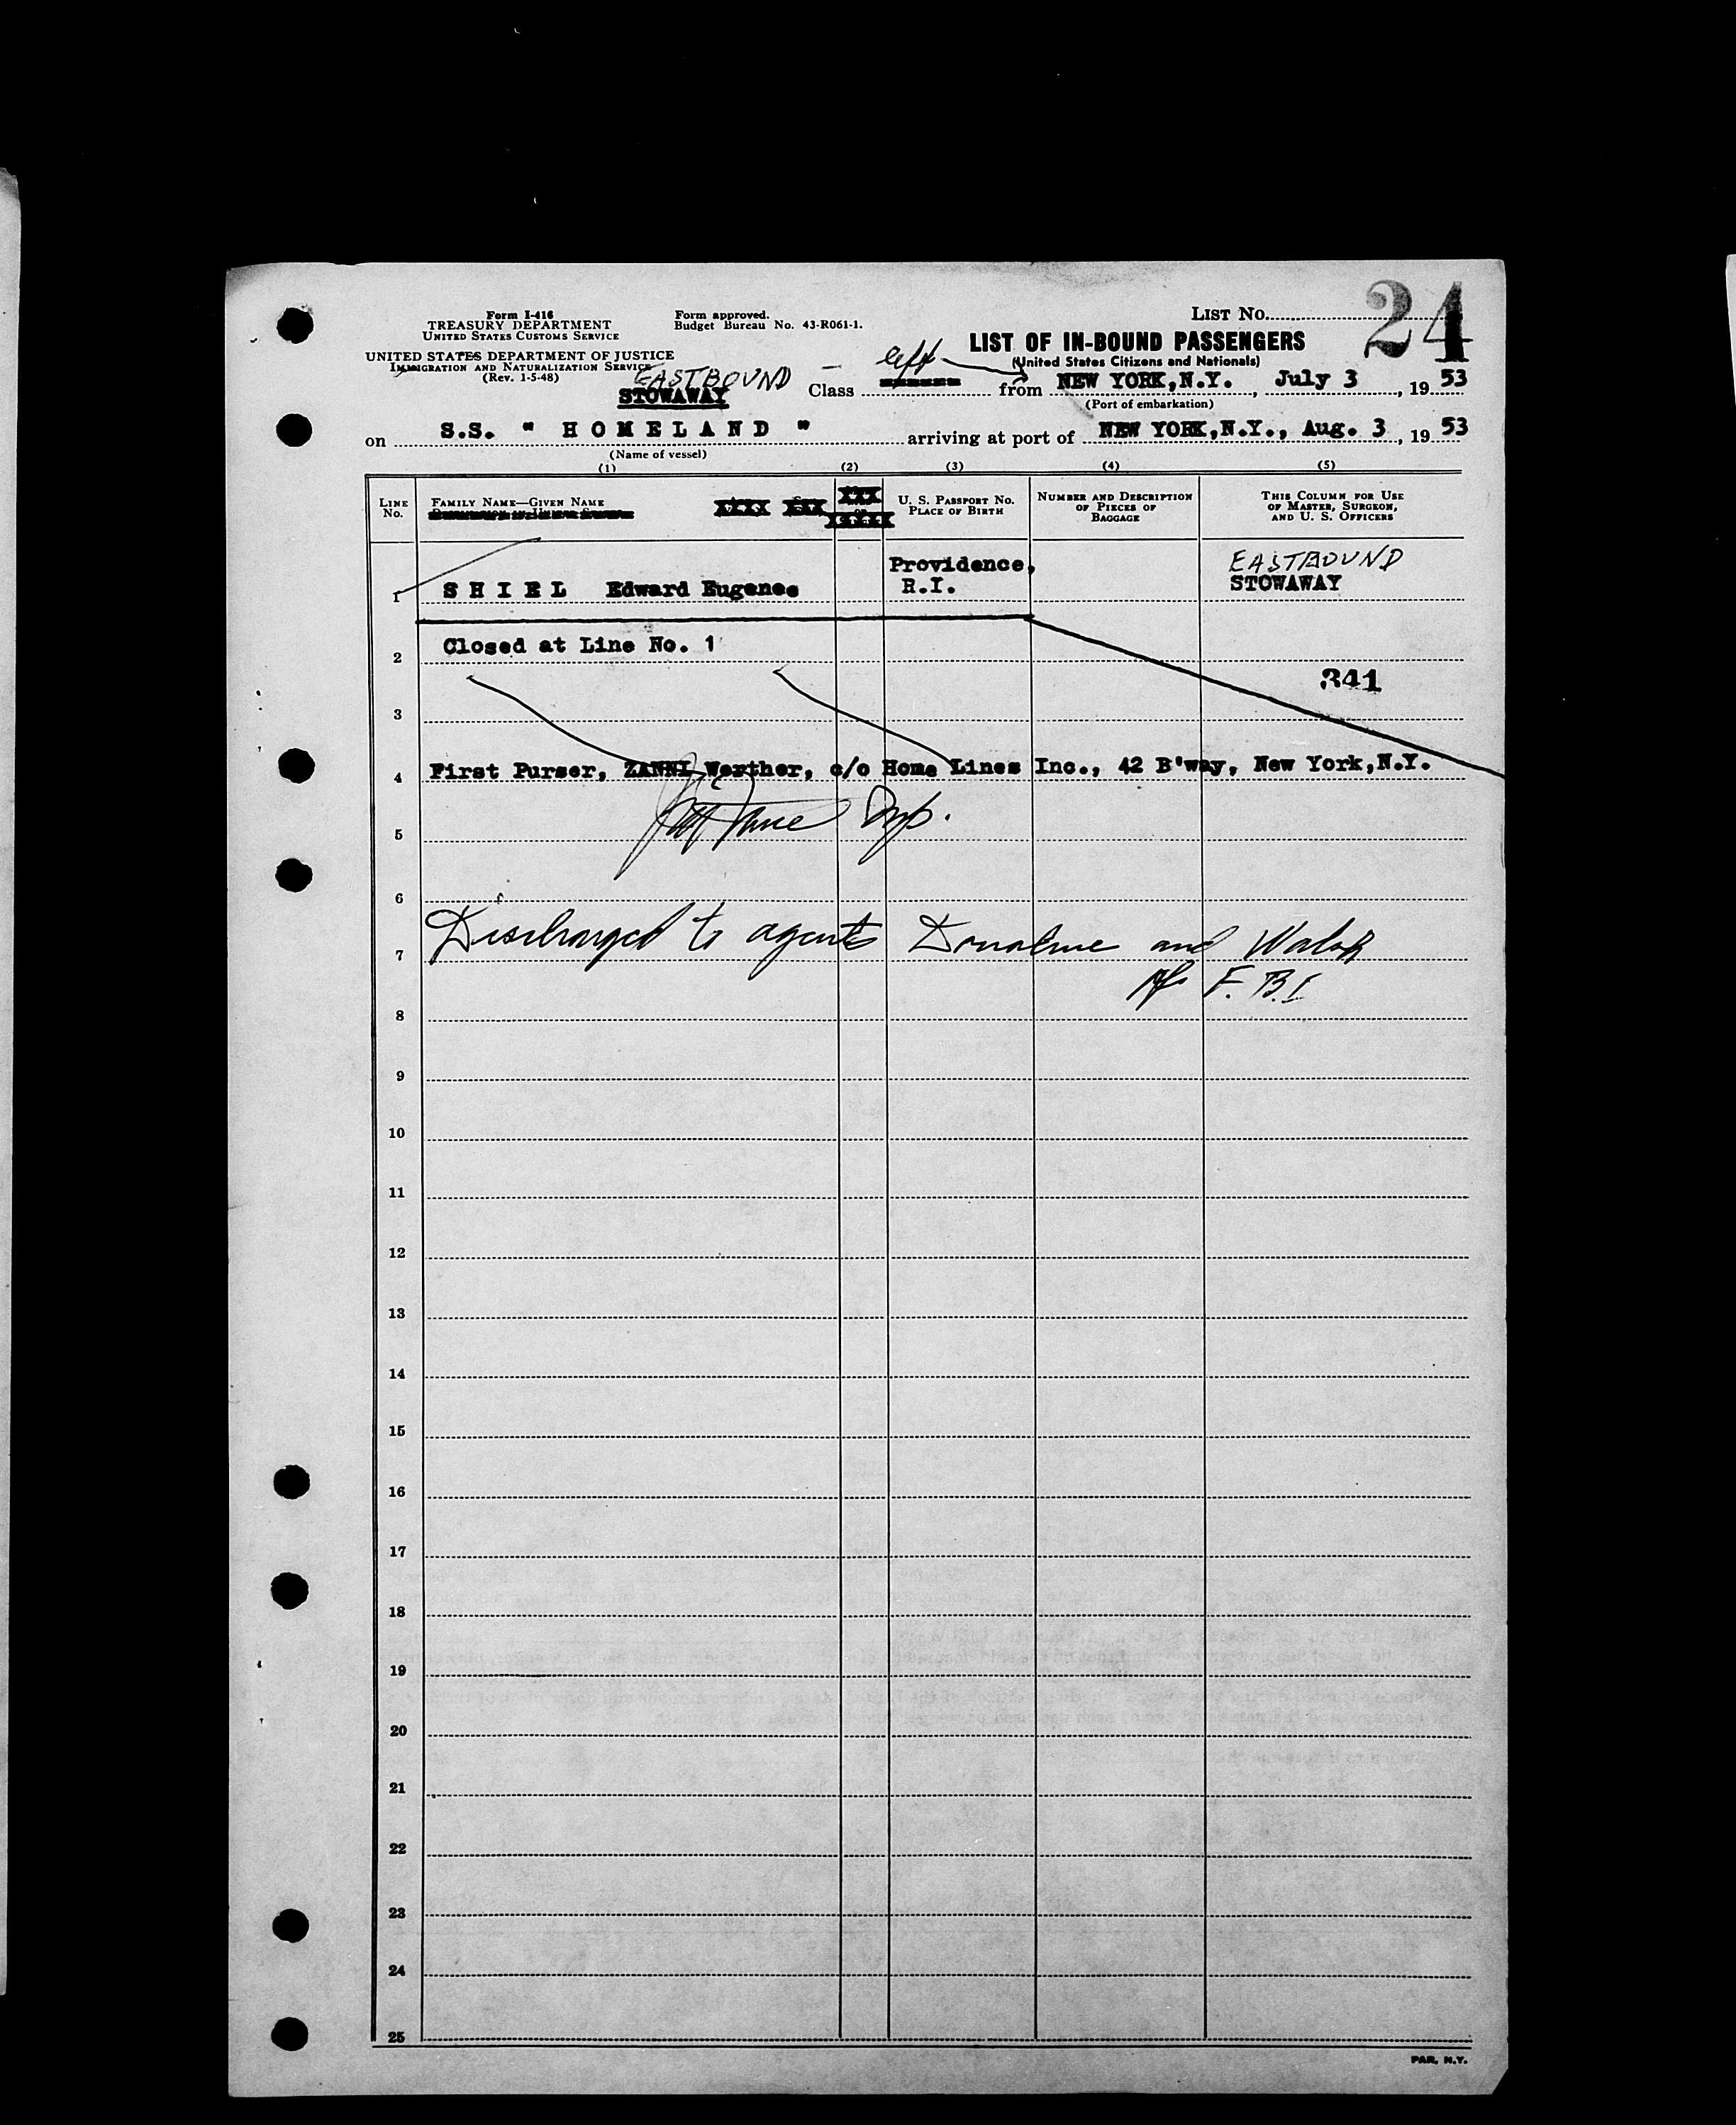 24
Form I-416
TREASURY DEPARTMENT
UNITED STATES CUSTOMS SERVICE
Form approved.
Budget Bureau No. 43-R061-1.
LIST NO.
LIST OF IN-BOUND PASSENGERS
(United States Citizens and Nationals)
UNITED STATES DEPARTMENT OF JUSTICE
IMMIGRATION AND NATURALIZATION SERVICE
(Rev. 1-5-48)
EASTBOUND
STOWAWAY
Class left from NEW YORK,N.Y. , July 3 , 19 53
(Port of embarkation)
on S.S. " H O M E L A N D " arriving at port of NEW YORK,N.Y., Aug. 3 , 19 53
(Name of vessel)
(1) (2) (3) (4) (5)
LINE NO.
FAMILY NAME—GIVEN NAME
U. S. PASSPORT NO.
PLACE OF BIRTH
NUMBER AND DESCRIPTION
OF PIECES OF
BAGGAGE
THIS COLUMN FOR USE
OF MASTER, SURGEON,
AND U. S. OFFICERS
1 S H I E L Edward Eugenee Providence, R.I. EASTBOUND STOWAWAY
2 Closed at Line No. 1
341
3
4 First Purser, ZANNI Werther, c/o Home Lines Inc., 42 B'way, New York,N.Y.
5 Insp.
6
7 Discharged to agents Donahue and Walsh
of F.B.I
8
9
10
11
12
13
14
15
16
17
18
19
20
21
22
23
24
25
PAR, N.Y.